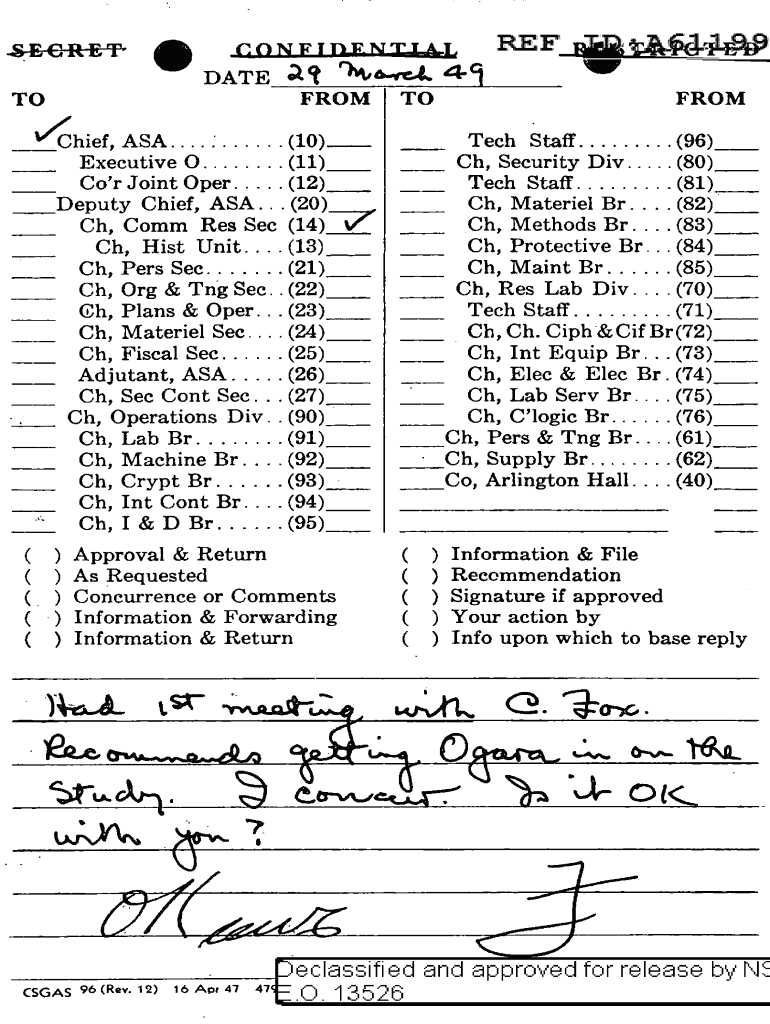 SECRET CONFIDENTIAL REF ID:A61199
RESTRICTED
DATE 29 March 49
TO FROM
✓ Chief, ASA........... (10)
Executive O........ (11)
Co'r Joint Oper..... (12)
Deputy Chief, ASA... (20)
Ch, Comm Res Sec (14) ✓
Ch, Hist Unit.... (13)
Ch, Pers Sec....... (21)
Ch, Org & Tng Sec.. (22)
Ch, Plans & Oper... (23)
Ch, Materiel Sec.... (24)
Ch, Fiscal Sec...... (25)
Adjutant, ASA..... (26)
Ch, Sec Cont Sec... (27)
Ch, Operations Div.. (90)
Ch, Lab Br........ (91)
Ch, Machine Br.... (92)
Ch, Crypt Br...... (93)
Ch, Int Cont Br.... (94)
Ch, I & D Br...... (95)
TO FROM
Tech Staff......... (96)
Ch, Security Div..... (80)
Tech Staff......... (81)
Ch, Materiel Br.... (82)
Ch, Methods Br.... (83)
Ch, Protective Br... (84)
Ch, Maint Br...... (85)
Ch, Res Lab Div.... (70)
Tech Staff......... (71)
Ch, Ch. Ciph & Cif Br (72)
Ch, Int Equip Br... (73)
Ch, Elec & Elec Br. (74)
Ch, Lab Serv Br.... (75)
Ch, C'logic Br...... (76)
Ch, Pers & Tng Br.... (61)
Ch, Supply Br........ (62)
Co, Arlington Hall.... (40)
( ) Approval & Return
( ) As Requested
( ) Concurrence or Comments
( ) Information & Forwarding
( ) Information & Return
( ) Information & File
( ) Recommendation
( ) Signature if approved
( ) Your action by
( ) Info upon which to base reply
Had 1st meeting with C. Fox.
Recommends getting Ogara in on the
Study. I concur. Is it OK
with you?
OK
F
CSGAS 96 (Rev. 12) 16 Apr 47
Declassified and approved for release by NS
E.O. 13526